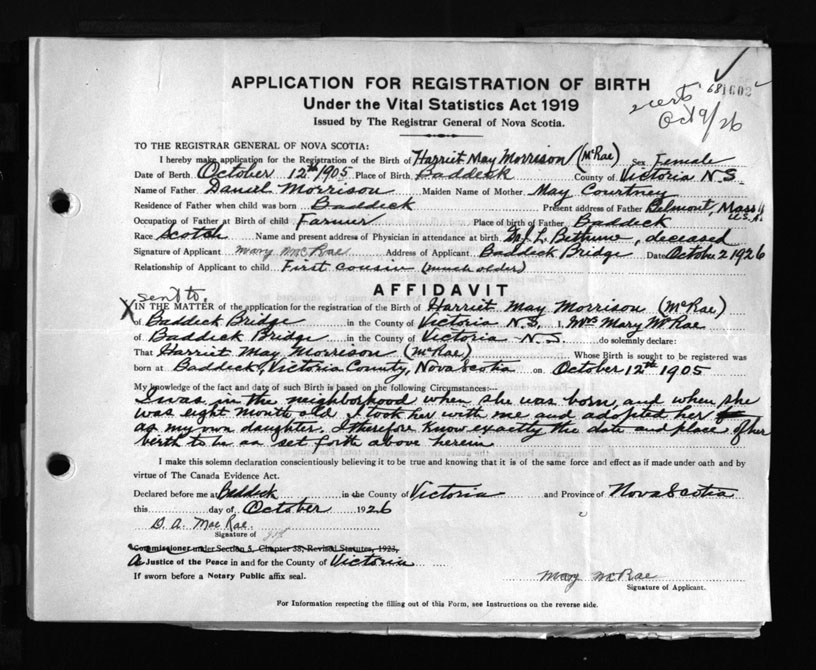 681602
APPLICATION FOR REGISTRATION OF BIRTH
Under the Vital Statistics Act 1919
Issued by The Registrar General of Nova Scotia.
Oct 9/26
TO THE REGISTRAR GENERAL OF NOVA SCOTIA:
I hereby make application for the Registration of the Birth of Harriet May Morrison (McRae) Sex Female
Date of Birth October 12th 1905 Place of Birth Baddeck County of Victoria N.S.
Name of Father Daniel Morrison Maiden Name of Mother May Courtney
Residence of Father when child was born Baddeck Present address of Father Belmont, Mass U.S.A.
Occupation of Father at Birth of child Farmer Place of birth of Father Baddeck
Race Scotch Name and present address of Physician in attendance at birth L. Bethune, deceased
Signature of Applicant Mary McRae Address of Applicant Baddeck Bridge Date October 2 1926
Relationship of Applicant to child First cousin (much older)
AFFIDAVIT
X sent to.
IN THE MATTER of the application for the registration of the Birth of Harriet May Morrison (McRae)
of Baddeck Bridge in the County of Victoria N.S. I, Mrs Mary McRae
of Baddeck Bridge in the County of Victoria N.S. do solemnly declare:
That Harriet May Morrison (McRae) Whose Birth is sought to be registered was
born at Baddeck, Victoria County, Nova Scotia on October 12th 1905
My knowledge of the fact and date of such Birth is based on the following Circumstances:—
I was in the neighborhood when she was born, and when she
was eight month old I took her with me and adopted her
as my own daughter. I therefore know exactly the date and place of her
birth to be as set forth above herein
I make this solemn declaration conscientiously believing it to be true and knowing that it is of the same force and effect as if made under oath and by
virtue of The Canada Evidence Act.
Declared before me at Baddeck in the County of Victoria and Province of Nova Scotia
this day of October 1926
D. A. MacRae.
Signature of
Commissioner under Section 5, Chapter 38, Revised Statutes, 1923,
A Justice of the Peace in and for the County of Victoria
If sworn before a Notary Public affix seal.
Mary McRae
Signature of Applicant.
For Information respecting the filling out of this Form, see Instructions on the reverse side.